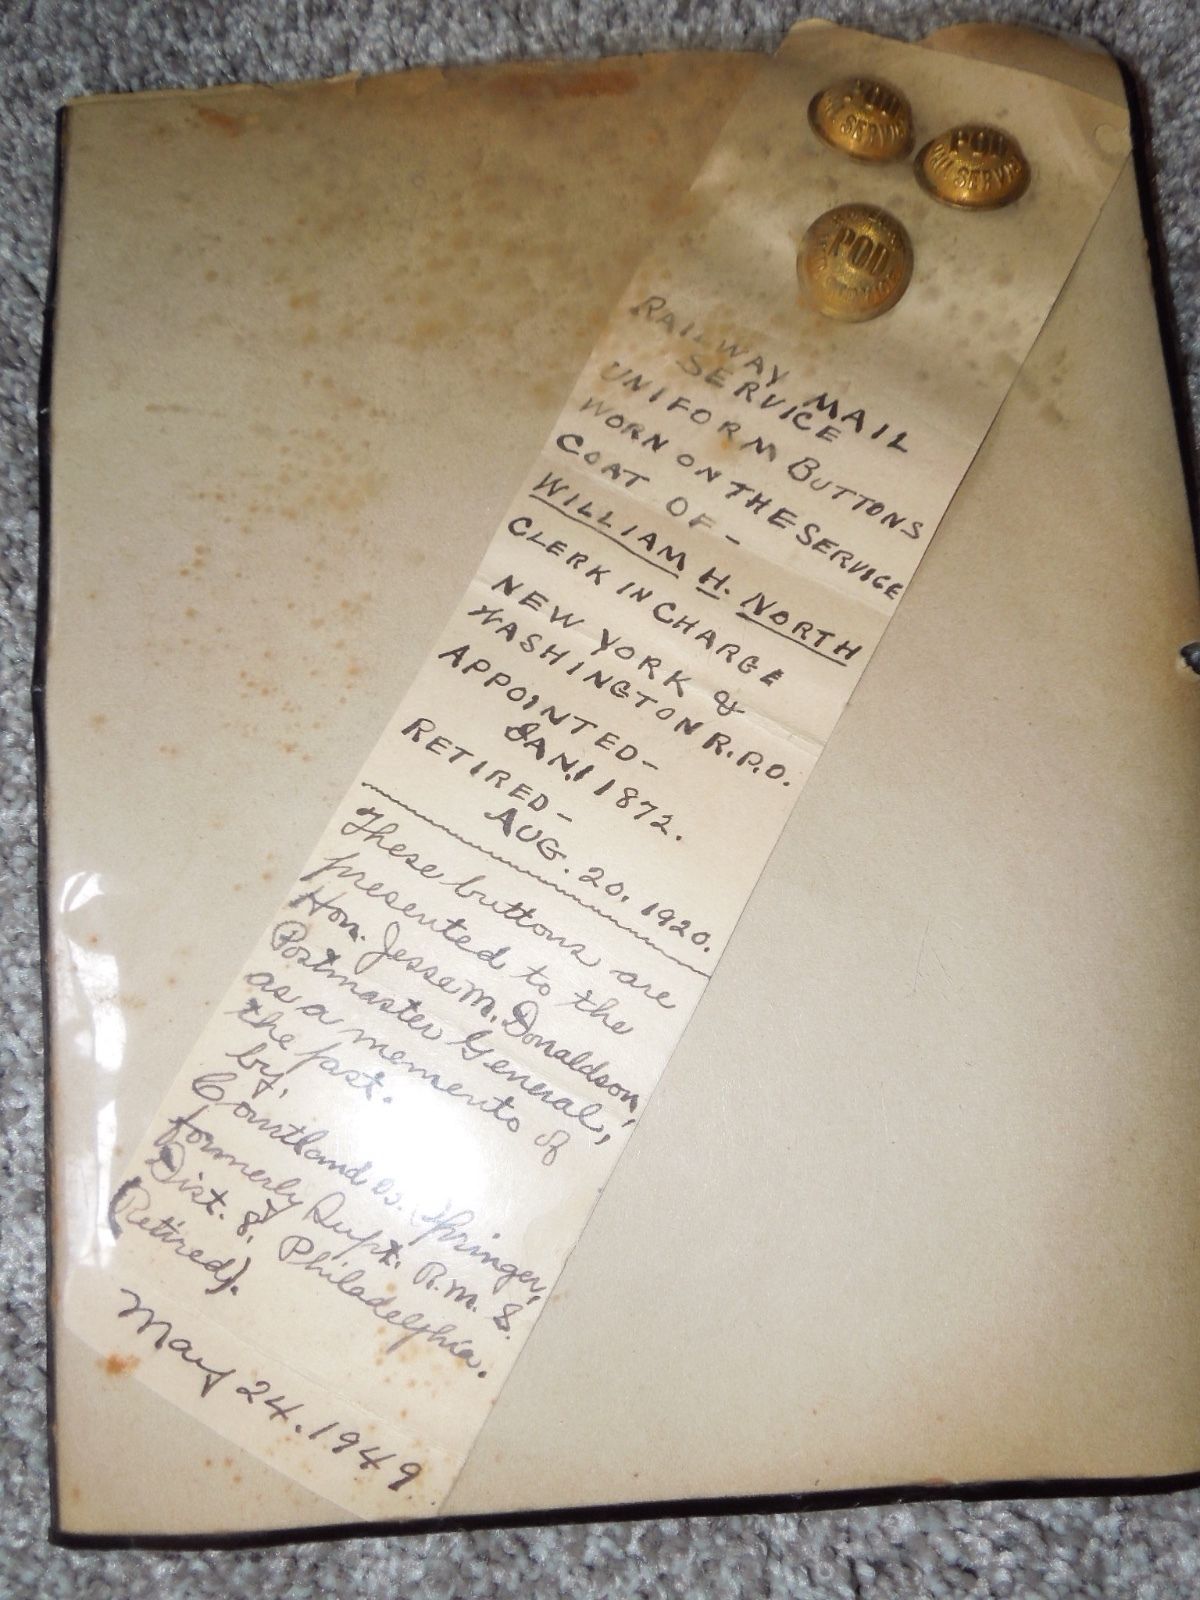 POD
POD
MAIL SERVICE
POD
RAILWAY MAIL
SERVICE
UNIFORM BUTTONS
WORN ON THE SERVICE
COAT OF -
WILLIAM H. NORTH
CLERK IN CHARGE
NEW YORK &
WASHINGTON R.P.O.
APPOINTED-
JAN. 1 1872.
RETIRED-
AUG. 20, 1920.
These buttons are
presented to the
Hon. Jesse M. Donaldson,
Postmaster General,
as a memento of
the past.
by,
Courtland Springer,
formerly Supt. R.M.S.
Dist. 8, Philadelphia.
(Retired).
May 24. 1949